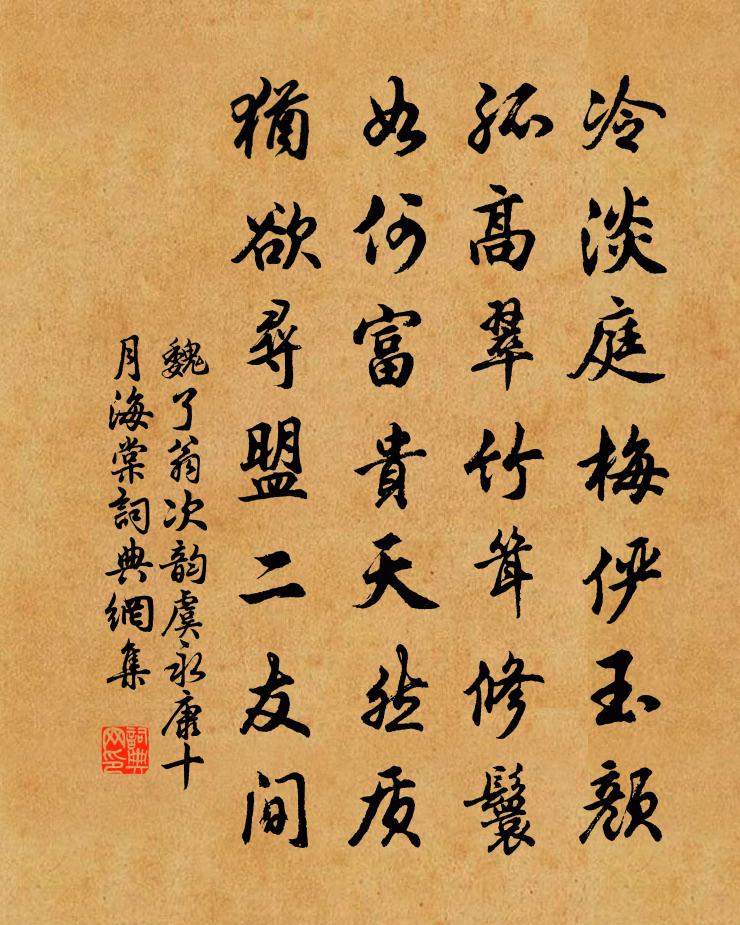 冷淡庭梅俜玉颜
孤高翠竹耸修鬟
如何富貴天然质
猶欲尋盟二友间
魏了翁次韵虞永康十
月海棠詞典網集
詞典网印